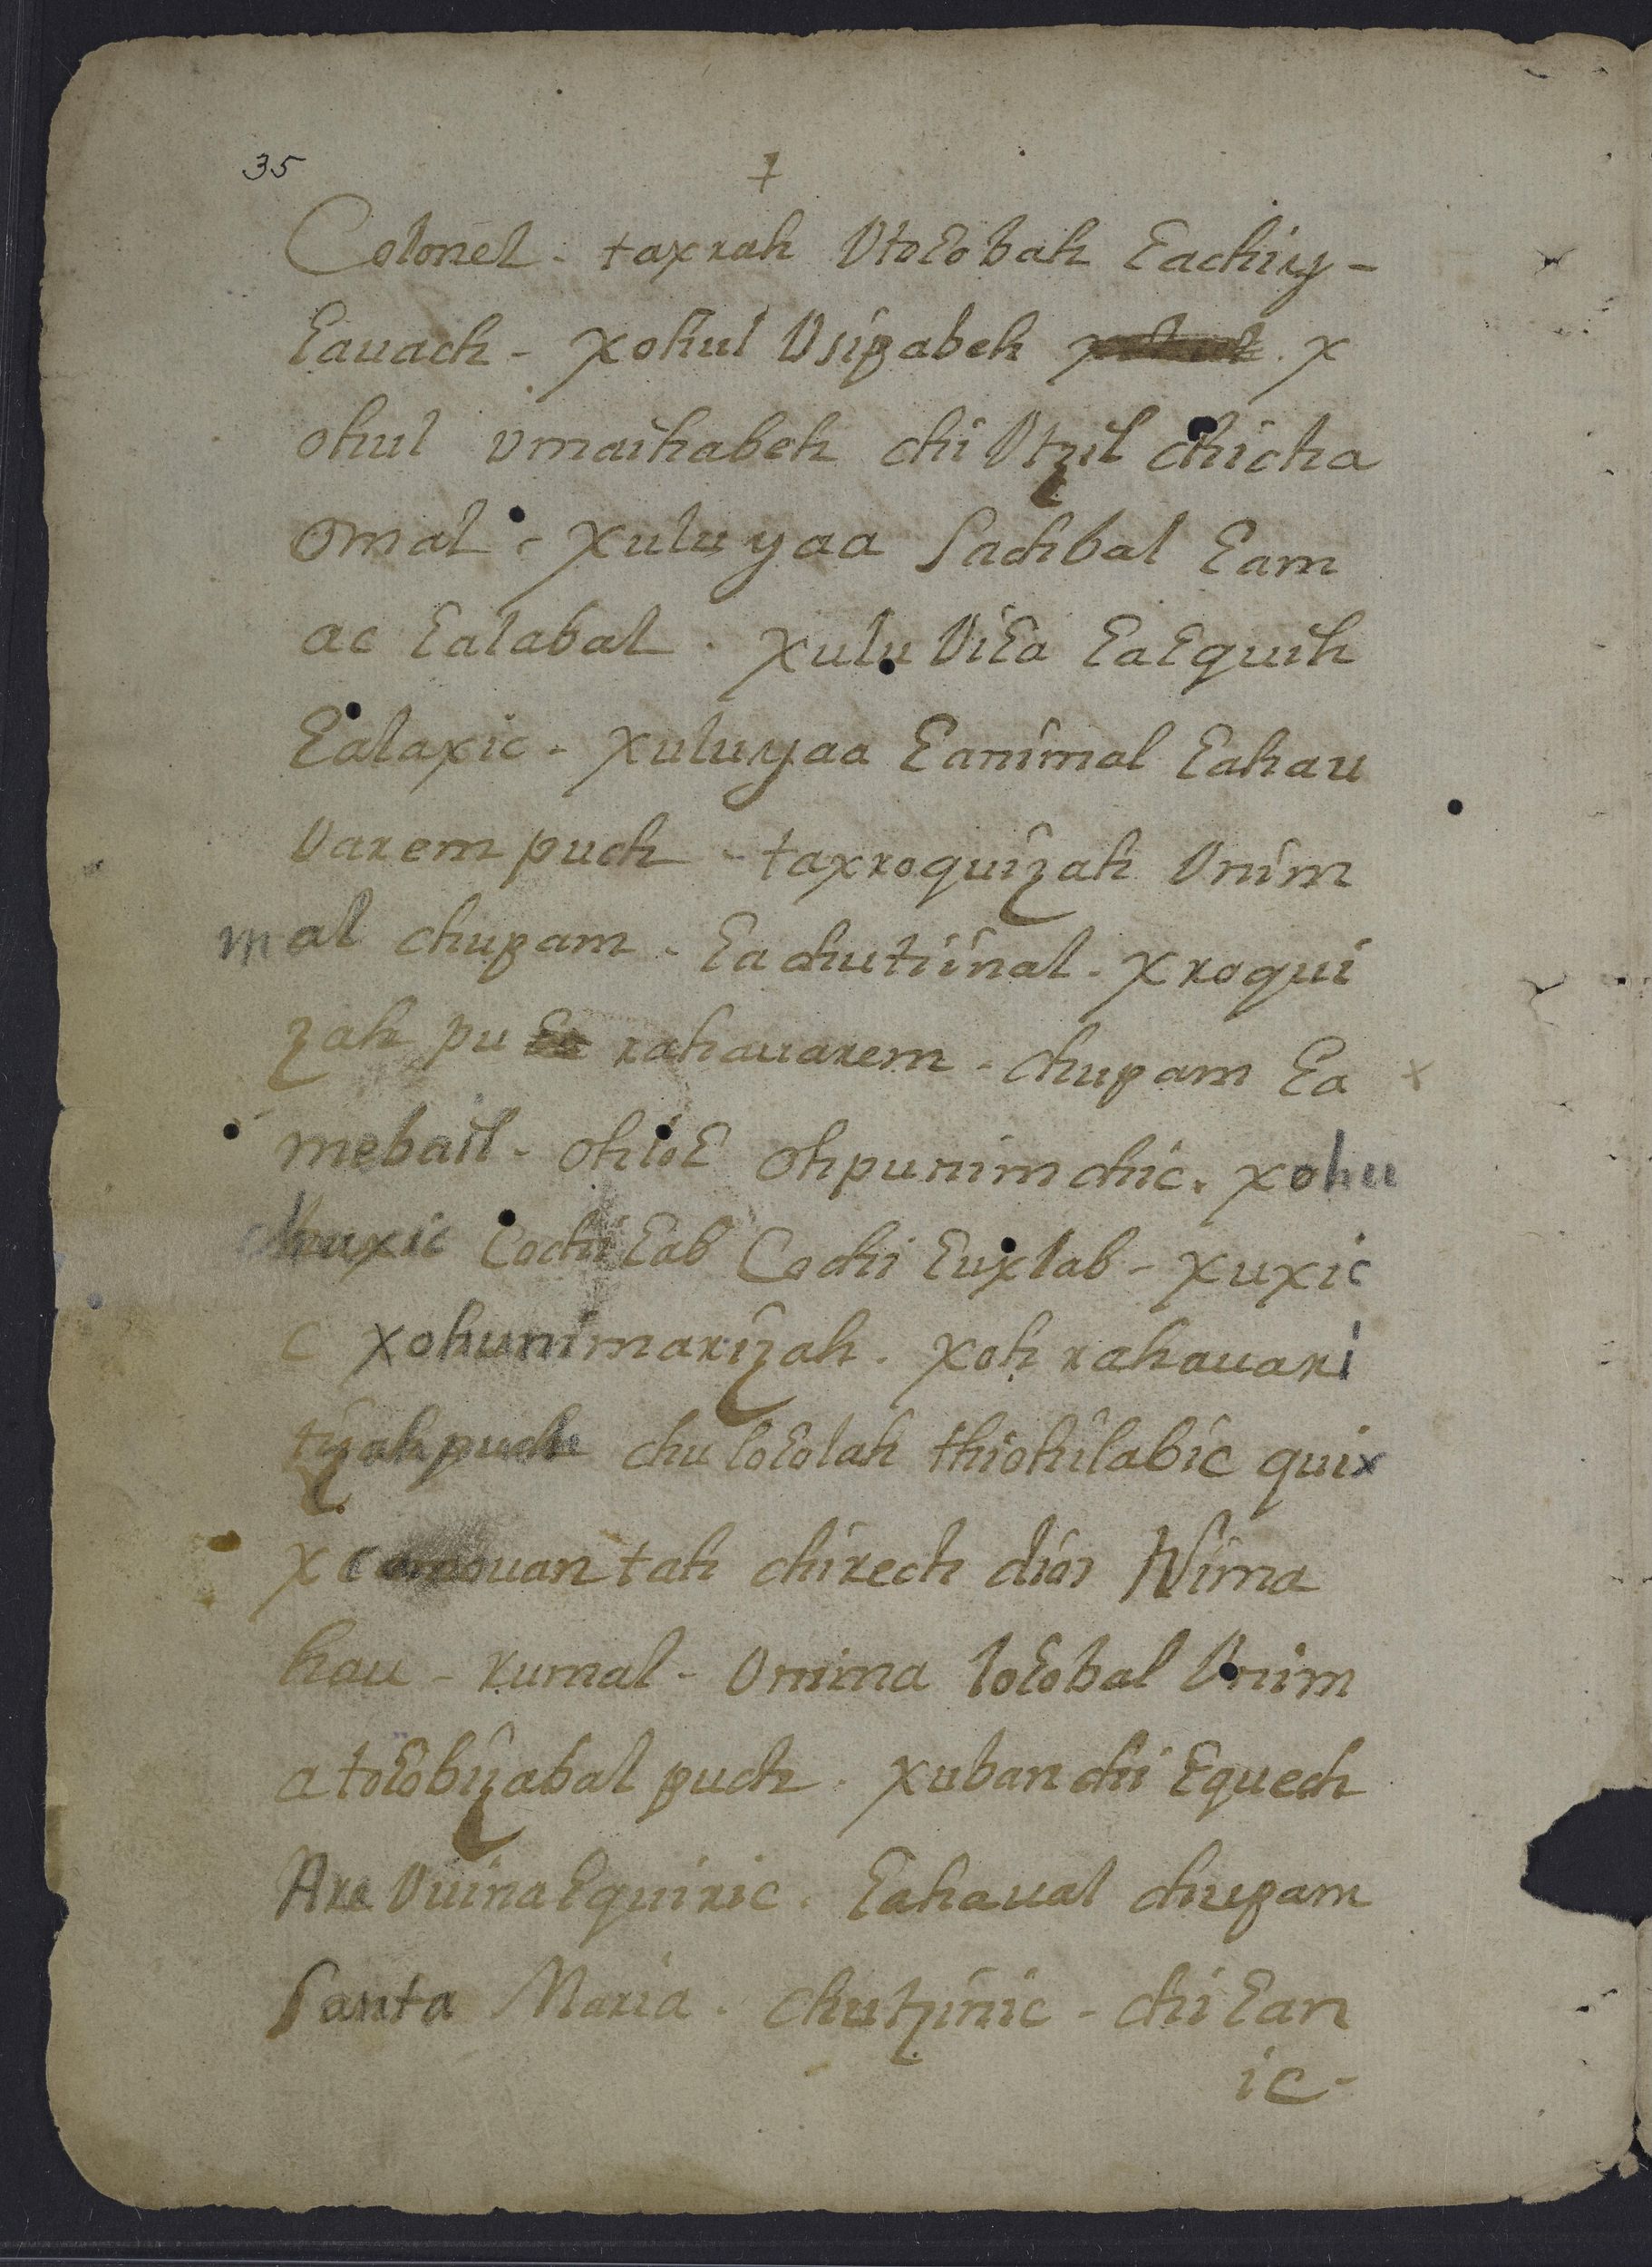 35 ‡
Colonel . taxrah Vtoɛobah ɛachiy -
ɛauach - xohul Vsipabeh . x
ohul vmaihabeh chi Vtzil chicha
omal . xuluyaa sachbal ɛam
ac ɛalabal . xulu Viɛa ɛaɛquih
ɛalaxic - xuluyaa ɛanimal ɛahau
varem puch - taxroquizah Vnim
mal chupam - ɛa chutiinal . xroqui
zah pu rahauarem - chupam ɛa x
mebail - ohloɛ ohpunimchic . xohu
chuxic ɛochiɛab Cochi ɛuxlab - xuxic
c xohunimarizah . xoh rahauari
tizah puch chu loɛolah thiohilabic quix
x camouan tah chirech dios Nima
hau - rumal - Vnima loɛobal Vnim
a toɛobizabal puch . xuban chi ɛquech
Are Vuinaɛquiric . ɛahaual chupam
Santa Maria . chutzinic - chi ɛan
ic -